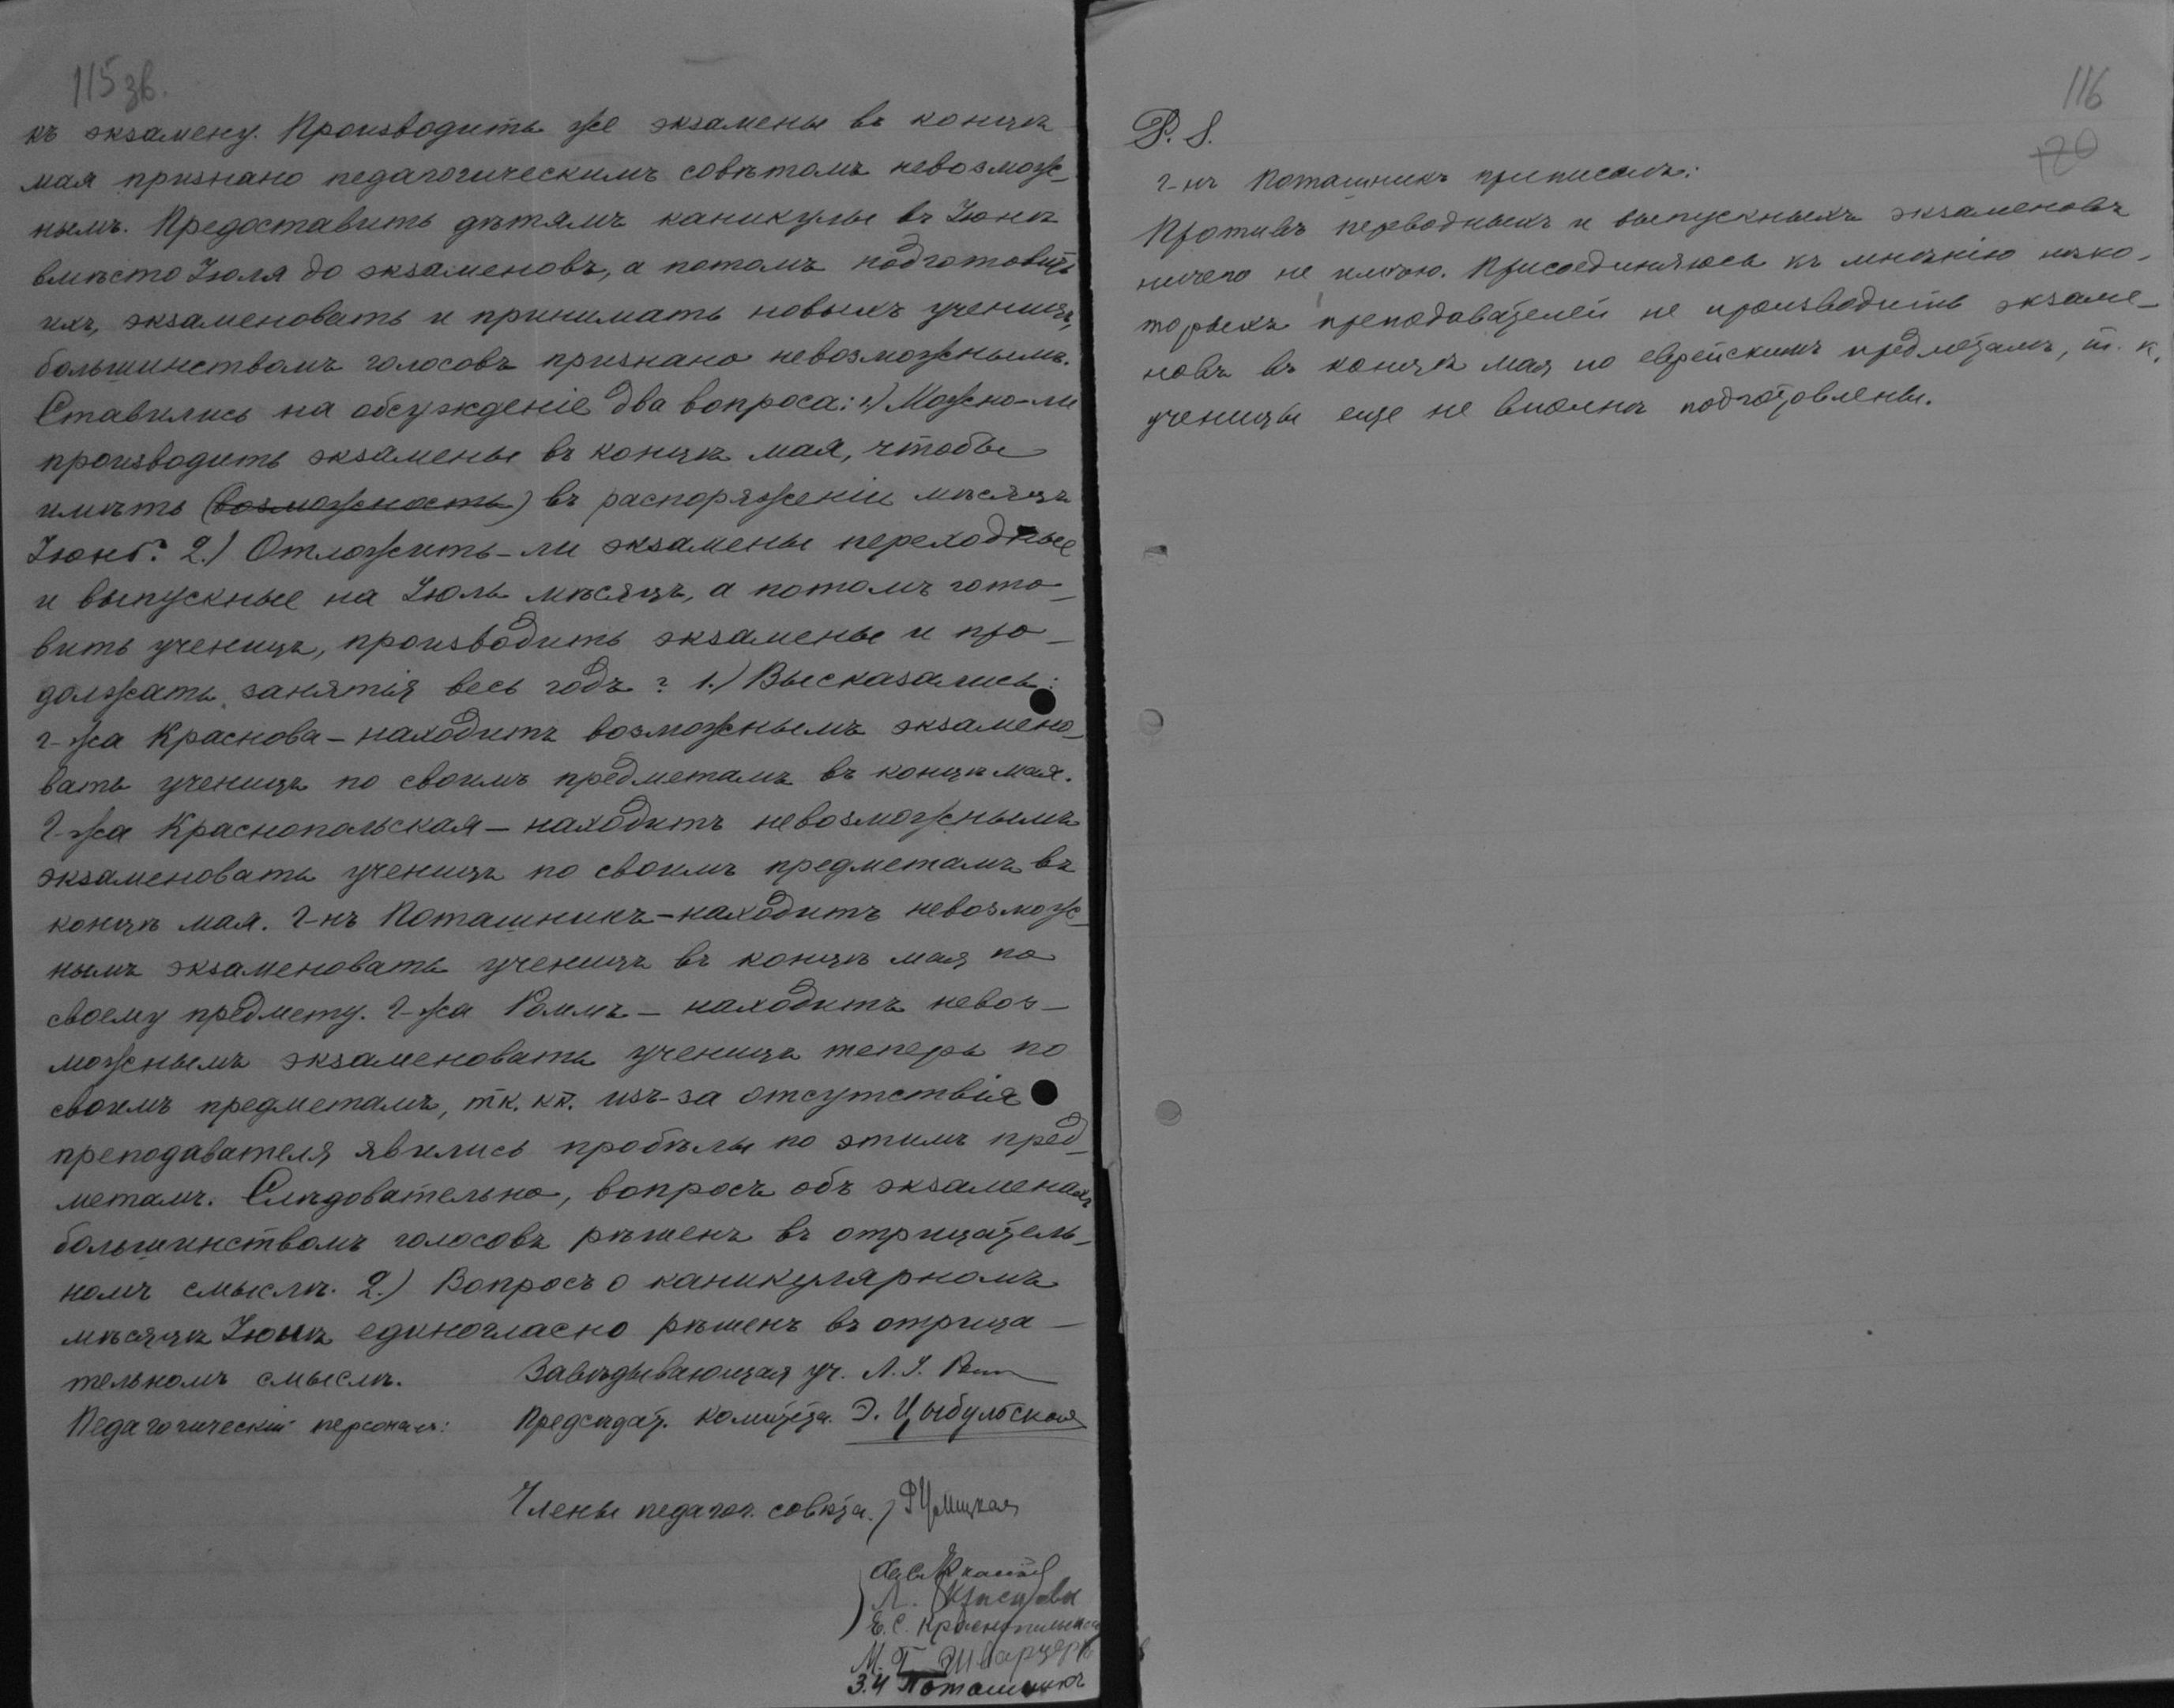 115 зв.
къ экзамену. Производить же экзамены въ концѣ
мая признано педагогическимъ совѣтомъ невозмож-
нымъ. Предоставить дѣтямъ каникулы въ Iюнѣ
вмѣсто Iюля до экзаменовъ, а потомъ подготовить
ихъ, экзаменовать и принимать новыхъ ученицъ,
большинствомъ голосовъ признано невозможнымъ.
Ставились на обсужденіе два вопроса: 1) Можно-ли
производить экзамены въ концѣ мая, чтобы
имѣть (возможность) въ распоряженіи мѣсяцъ
Iюнь? 2.) Отложить-ли экзамены переходные
и выпускные на Iюль мѣсяцъ, а потомъ гото-
вить ученицъ, производить экзамены и про-
должать занятія весь годъ? 1.) Высказались:
г-жа Краснова – находитъ возможнымъ экзамено-
вать ученицъ по своимъ предметамъ въ концѣ мая.
Г-жа Краснопольская – находитъ невозможнымъ
экзаменовать ученицъ по своимъ предметамъ въ
концѣ мая. Г-нъ Поташникъ – находитъ невозмож-
нымъ экзаменовать ученицъ въ концѣ мая по
своему предмету. Г-жа Роммъ – находитъ невоз-
можнымъ экзаменовать ученицъ теперь по
своимъ предметамъ, тк. кк. изъ-за отсутствія
преподавателя явились пробѣлы по этимъ пред-
метамъ. Слѣдовательно, вопросъ объ экзаменахъ
большинствомъ голосовъ рѣшенъ въ отрицатель-
номъ смыслѣ. 2.) Вопросъ о каникулярномъ
мѣсяцѣ Iюнѣ единогласно рѣшенъ въ отрица-
тельномъ смыслѣ. Завѣдывающая уч. Л. I.
Педагогическій персоналъ: Предсѣдат. комитета Э. Цыбульская
Члены педагог. совѣта.
Е. С. Краснопольская
М. Г. Шварцеръ
З. И Поташникъ
116
P. S.
г-нъ Поташникъ приписалъ:
Противъ переводныхъ и выпускныхъ экзаменовъ
ничего не имѣю. Присоединяюсь къ мнѣнію нѣко-
торыхъ преподавателей не производить экзаме-
новъ въ концѣ мая по еврейскимъ предметамъ, т. к.
ученицы еще не вполнѣ подготовлены.